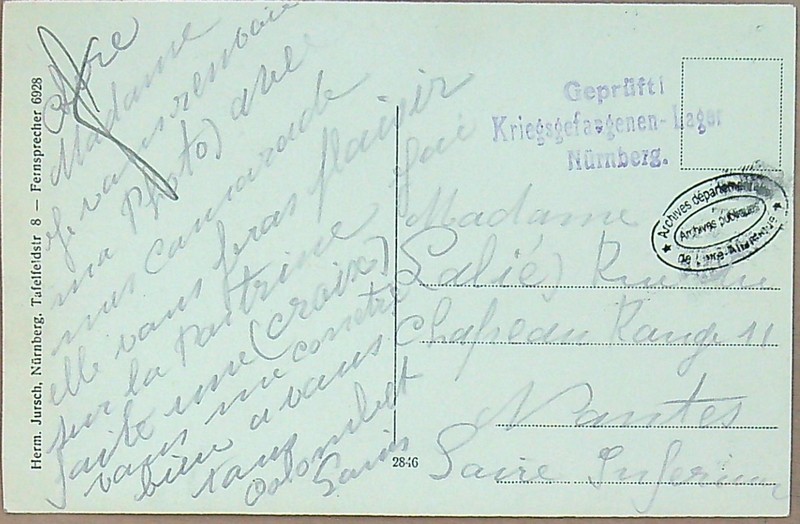 Herm. Jursch, Nürnberg, Tafelfeldstr 8 — Fernsprecher 6928
Chère
Madame
Je vous renvoie
ma Photo) avec
mes camarade
elle vous feras plaisir
sur la Poitrine jai
faite une (Croix)
vous me conetre
bien a vous
tous
Colombet
Geprüft!
Kriegsgefangenen-Lager
Nürnberg.
Archives départem
Archives publiques
de Loire-Atlantique
Madame
Salié) Rue du
Chapeau Rouge 11
Nantes
Loire Inferieure
2846